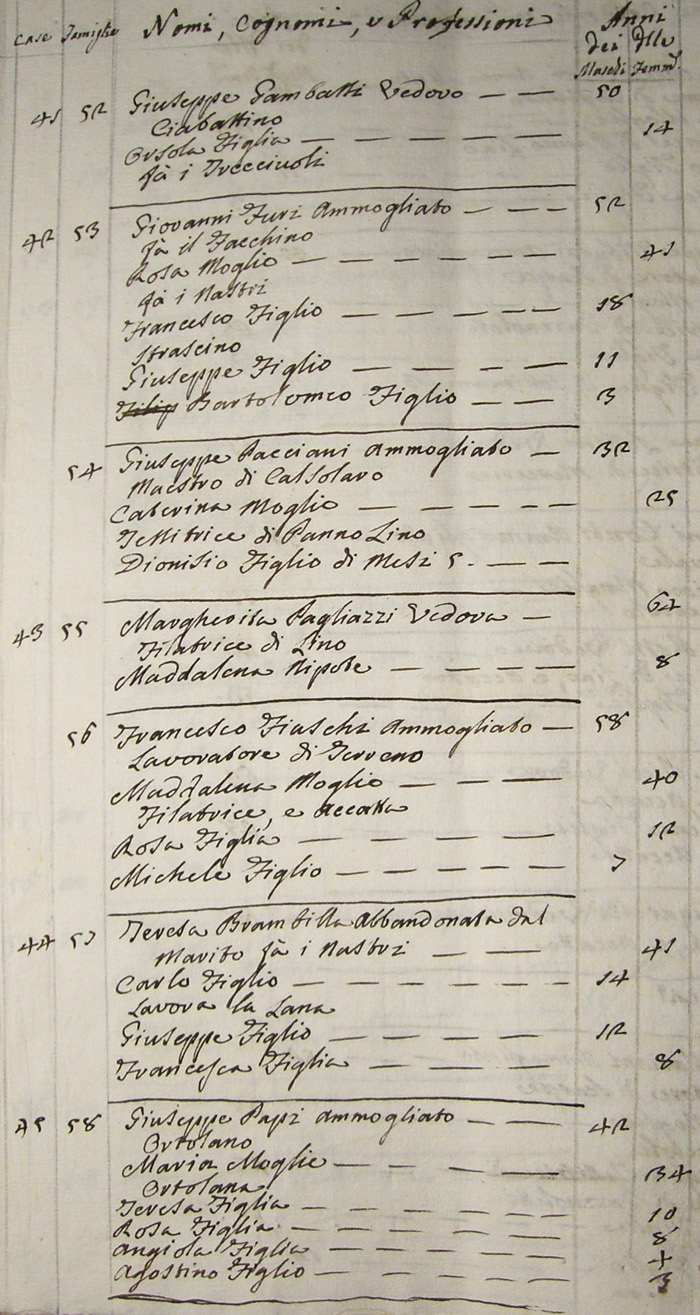 Case Famiglie Nomi, Cognomi, e Professioni Anni
dei delle
Maschi Femm.
41 52 Giuseppe Gambatti Vedovo — — 50
Ciabattino
Orsola Figlia — — — — 14
fà i Trecciuoli
42 53 Giovanni Furi Ammogliato — — — 52
fà il Facchino
Rosa Moglio — — — — — — 41
fà i Nastri
Francesco Figlio — — — — 18
Strascino
Giuseppe Figlio — — — — 11
Bartolomeo Figlio — — — 3
54 Giuseppe Pacciani Ammogliato — 32
Maestro di Cassolaro
Caterina Moglio — — — — 25
Tessitrice di Panno Lino
Dionisio Figlio di Mesi 5. — — —
43 55 Margherita Pagliazzi Vedova — 62
Filatrice di Lino
Maddalena Nipote — — — — 8
56 Francesco Fiaschi Ammogliato — 58
Lavoratore di Terreno
Maddalena Moglio — — — — 40
Filatrice, e Accatta
Rosa Figlia — — — — — 12
Michele Figlio — — — — — 7
44 57 Teresa Brambilla Abbandonata dal
Marito fà i Nastri — — 41
Carlo Figlio — — — — — — 14
Lavora la Lana
Giuseppe Figlio — — — — 12
Francesca Figlia — — — — 8
45 58 Giuseppe Papi Ammogliato — — — 42
Ortolano
Maria Moglie — — — — — 34
Ortolana
Teresa Figlia — — — — — — 10
Rosa Figlia — — — — — — 8
Angiola Figlia — — — — — 4
Agostino Figlio — — — — — 3